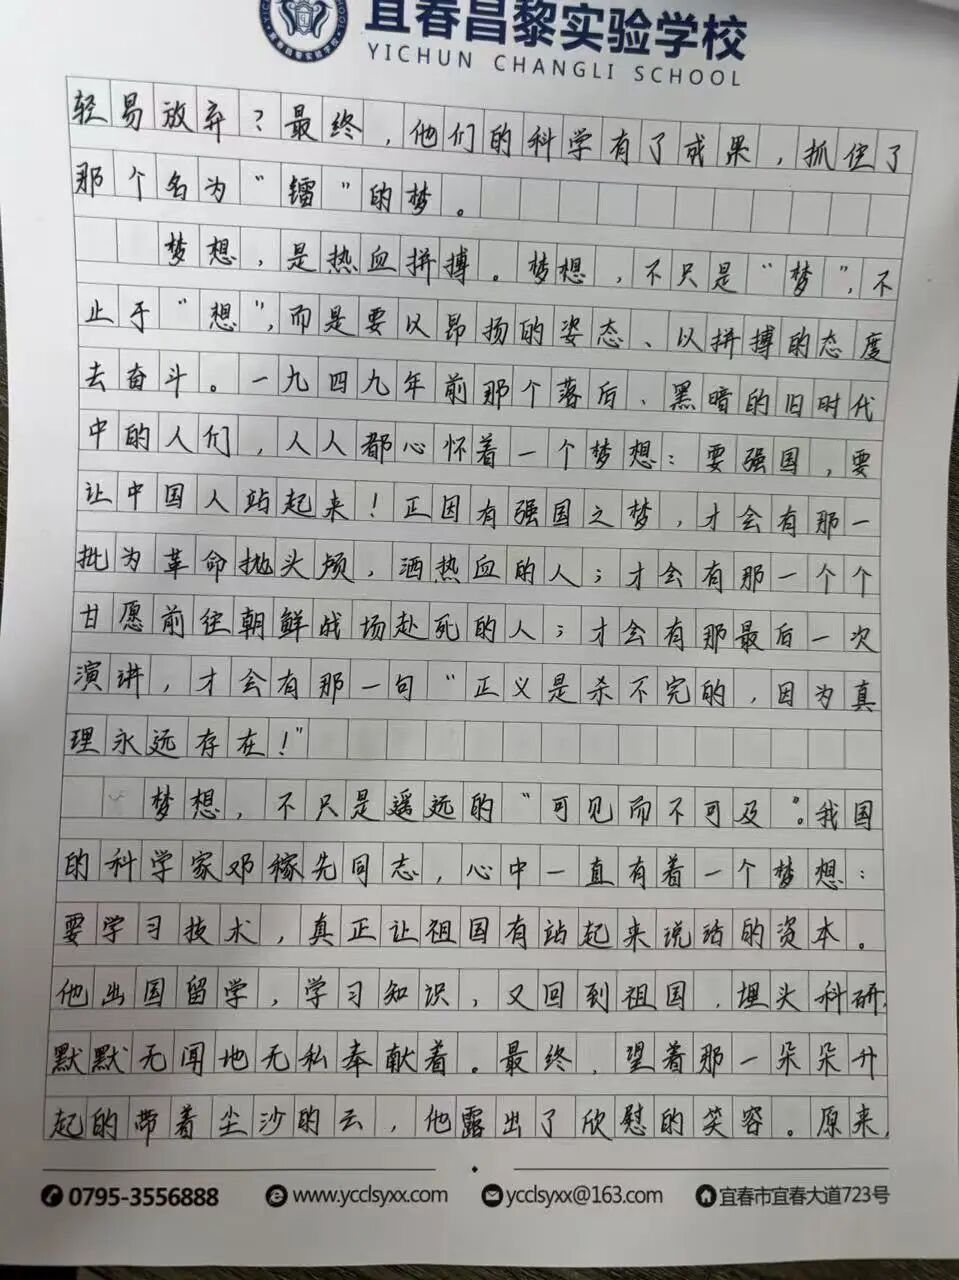 宜春昌黎实验学校
YICHUN CHANGLI SCHOOL
轻易放弃？最终，他们的科学有了成果，抓住了
那个名为“镭”的梦。
梦想，是热血拼搏。梦想，不只是“梦”，不
止于“想”，而是要以昂扬的姿态、以拼搏的态度
去奋斗。一九四九年前那个落后、黑暗的旧时代
中的人们，人人都心怀着一个梦想：要强国，要
让中国人站起来！正因有强国之梦，才会有那一
批为革命抛头颅，洒热血的人；才会有那一个个
甘愿前往朝鲜战场赴死的人；才会有那最后一次
演讲，才会有那一句“正义是杀不完的，因为真
理永远存在！”
梦想，不只是遥远的“可见而不可及”。我国
的科学家邓稼先同志，心中一直有着一个梦想：
要学习技术，真正让祖国有站起来说话的资本。
他出国留学，学习知识，又回到祖国，埋头科研，
默默无闻地无私奉献着。最终，望着那一朵朵升
起的带着尘沙的云，他露出了欣慰的笑容。原来，
0795-3556888 www.ycclsyxx.com ycclsyxx@163.com 宜春市宜春大道723号